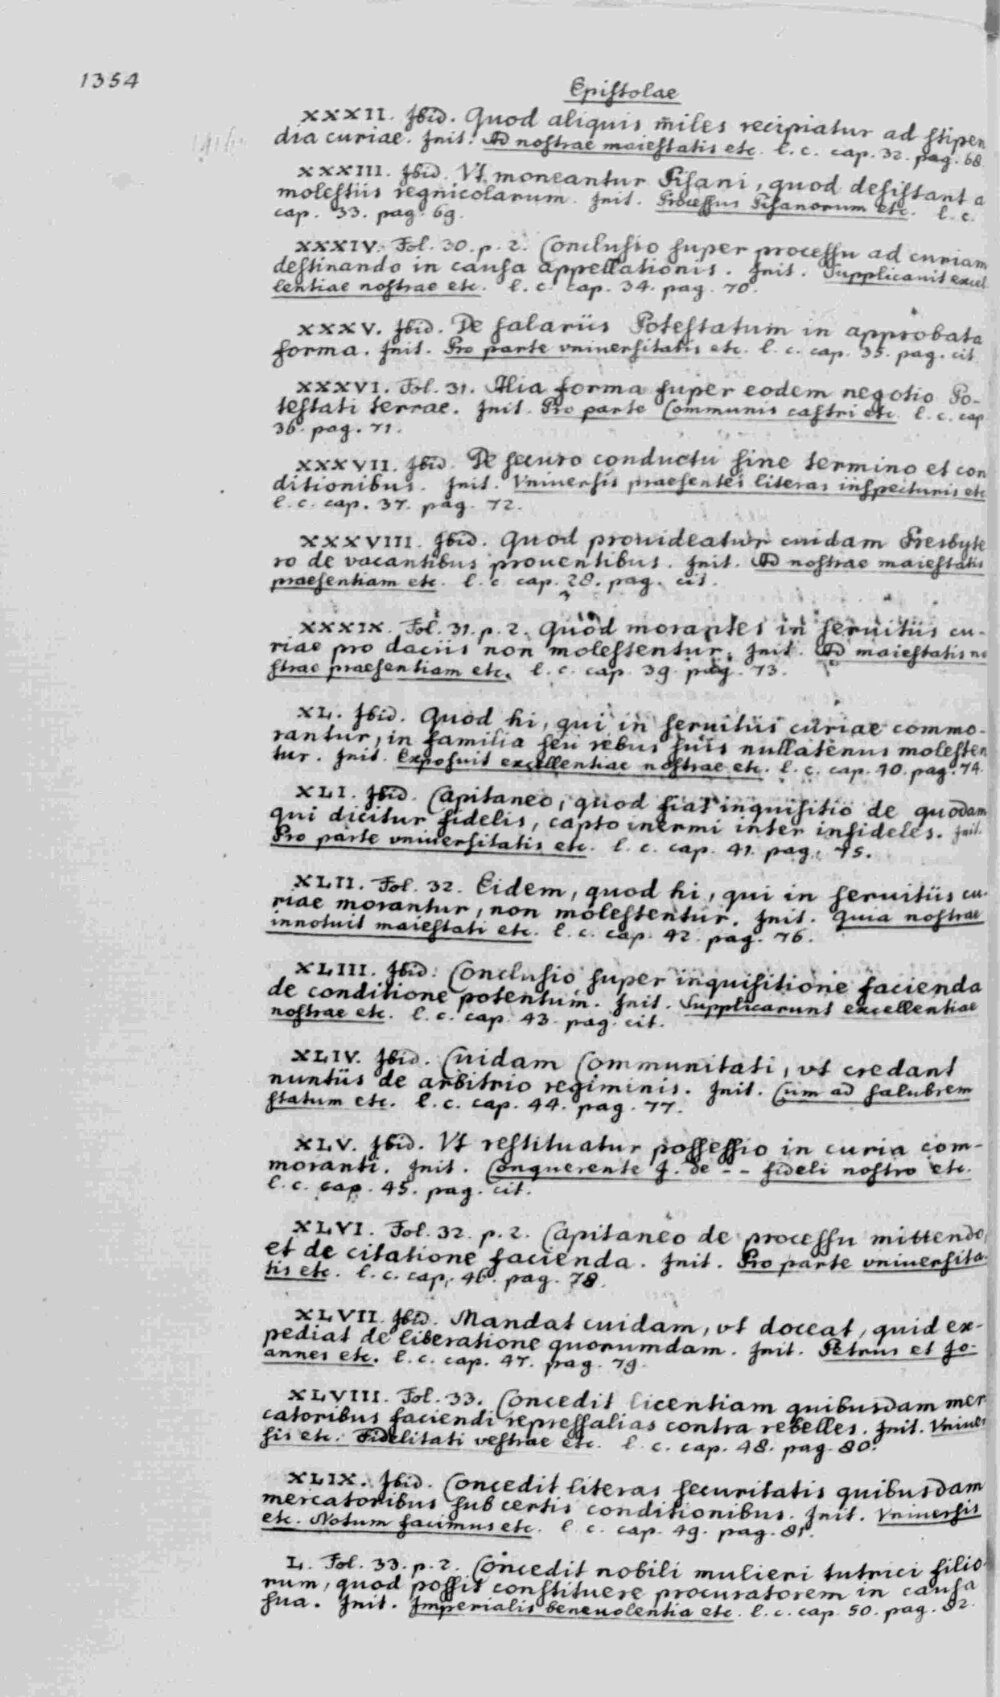 1354
Epistolae
XXXII. Ibid. Quod aliquis miles recipiatur ad stipen
dia curiae. Init. Ad nostrae maiestatis etc. l. c. cap. 32. pag. 68.
XXXIII. Ibid. Vt moneantur Pisani, quod desistant a
molestiis regnicolarum. Init. Processus Pisanorum etc. l. c.
cap. 33. pag. 69.
XXXIV. Fol. 30. p. 2. Conclusio super processu ad curiam
destinando in causa appellationis. Init. Supplicauit excel
lentiae nostrae etc. l. c. cap. 34. pag. 70.
XXXV. Ibid. De salariis Potestatum in approbata
forma. Init. Pro parte vniuersitatis etc. l. c. cap. 35. pag. cit.
XXXVI. Fol. 31. Alia forma super eodem negotio Po-
testati terrae. Init. Pro parte Communis castri etc. l. c. cap.
36. pag. 71.
XXXVII. Ibid. De securo conductu sine termino et con
ditionibus. Init. Vniuersis praesentes literas inspecturis etc
l. c. cap. 37. pag. 72.
XXXVIII. Ibid. Quod prouideatur cuidam Presbyte
ro de vacantibus prouentibus. Init. Ad nostrae maiestatis
praesentiam etc. l. c. cap. 28. pag. cit.
XXXIX. Fol. 31. p. 2. Quod morantes in seruitiis cu-
riae pro daciis non molestentur. Init. Ad maiestatis no
strae praesentiam etc. l. c. cap. 39. pag. 73.
XL. Ibid. Quod hi, qui in seruitiis curiae commo-
rantur, in familia seu rebus suis nullatenus molesten
tur. Init. Exposuit excellentiae nostrae etc. l. c. cap. 40. pag. 74.
XLI. Ibid. Capitaneo, quod fiat inquisitio de quodam
qui dicitur fidelis, capto inermi inter infideles. Init.
Pro parte vniuersitatis etc. l. c. cap. 41. pag. 75.
XLII. Fol. 32. Eidem, quod hi, qui in seruitiis cu-
riae morantur, non molestentur. Init. Quia nostrae
innotuit maiestati etc. l. c. cap. 42. pag. 76.
XLIII. Ibid. Conclusio super inquisitione facienda
de conditione potentum. Init. Supplicarunt excellentiae
nostrae etc. l. c. cap. 43. pag. cit.
XLIV. Ibid. Cuidam Communitati, vt credant
nuntiis de arbitrio regiminis. Init. Cum ad salubrem
statum etc. l. c. cap. 44. pag. 77.
XLV. Ibid. Vt restituatur possessio in curia com-
moranti. Init. Conquerente I. de - - fideli nostro etc.
l. c. cap. 45. pag. cit.
XLVI. Fol. 32. p. 2. Capitaneo de processu mittendo,
et de citatione facienda. Init. Pro parte vniuersita-
tis etc. l. c. cap. 46. pag. 78.
XLVII. Ibid. Mandat cuidam, vt doceat, quid ex-
pediat de liberatione quorumdam. Init. Petrus et Jo-
annes etc. l. c. cap. 47. pag. 79.
XLVIII. Fol. 33. Concedit licentiam quibusdam mer
catoribus faciendi repressalias contra rebelles. Init. Vniuer
sis etc. Fidelitati vestrae etc. l. c. cap. 48. pag. 80.
XLIX. Ibid. Concedit literas securitatis quibusdam
mercatoribus sub certis conditionibus. Init. Vniuersis
etc. Notum facimus etc. l. c. cap. 49. pag. 81.
L. Fol. 33. p. 2. Concedit nobili mulieri tutrici filio-
rum, quod possit constituere procuratorem in causa
sua. Init. Imperialis beneuolentia etc. l. c. cap. 50. pag. 82.